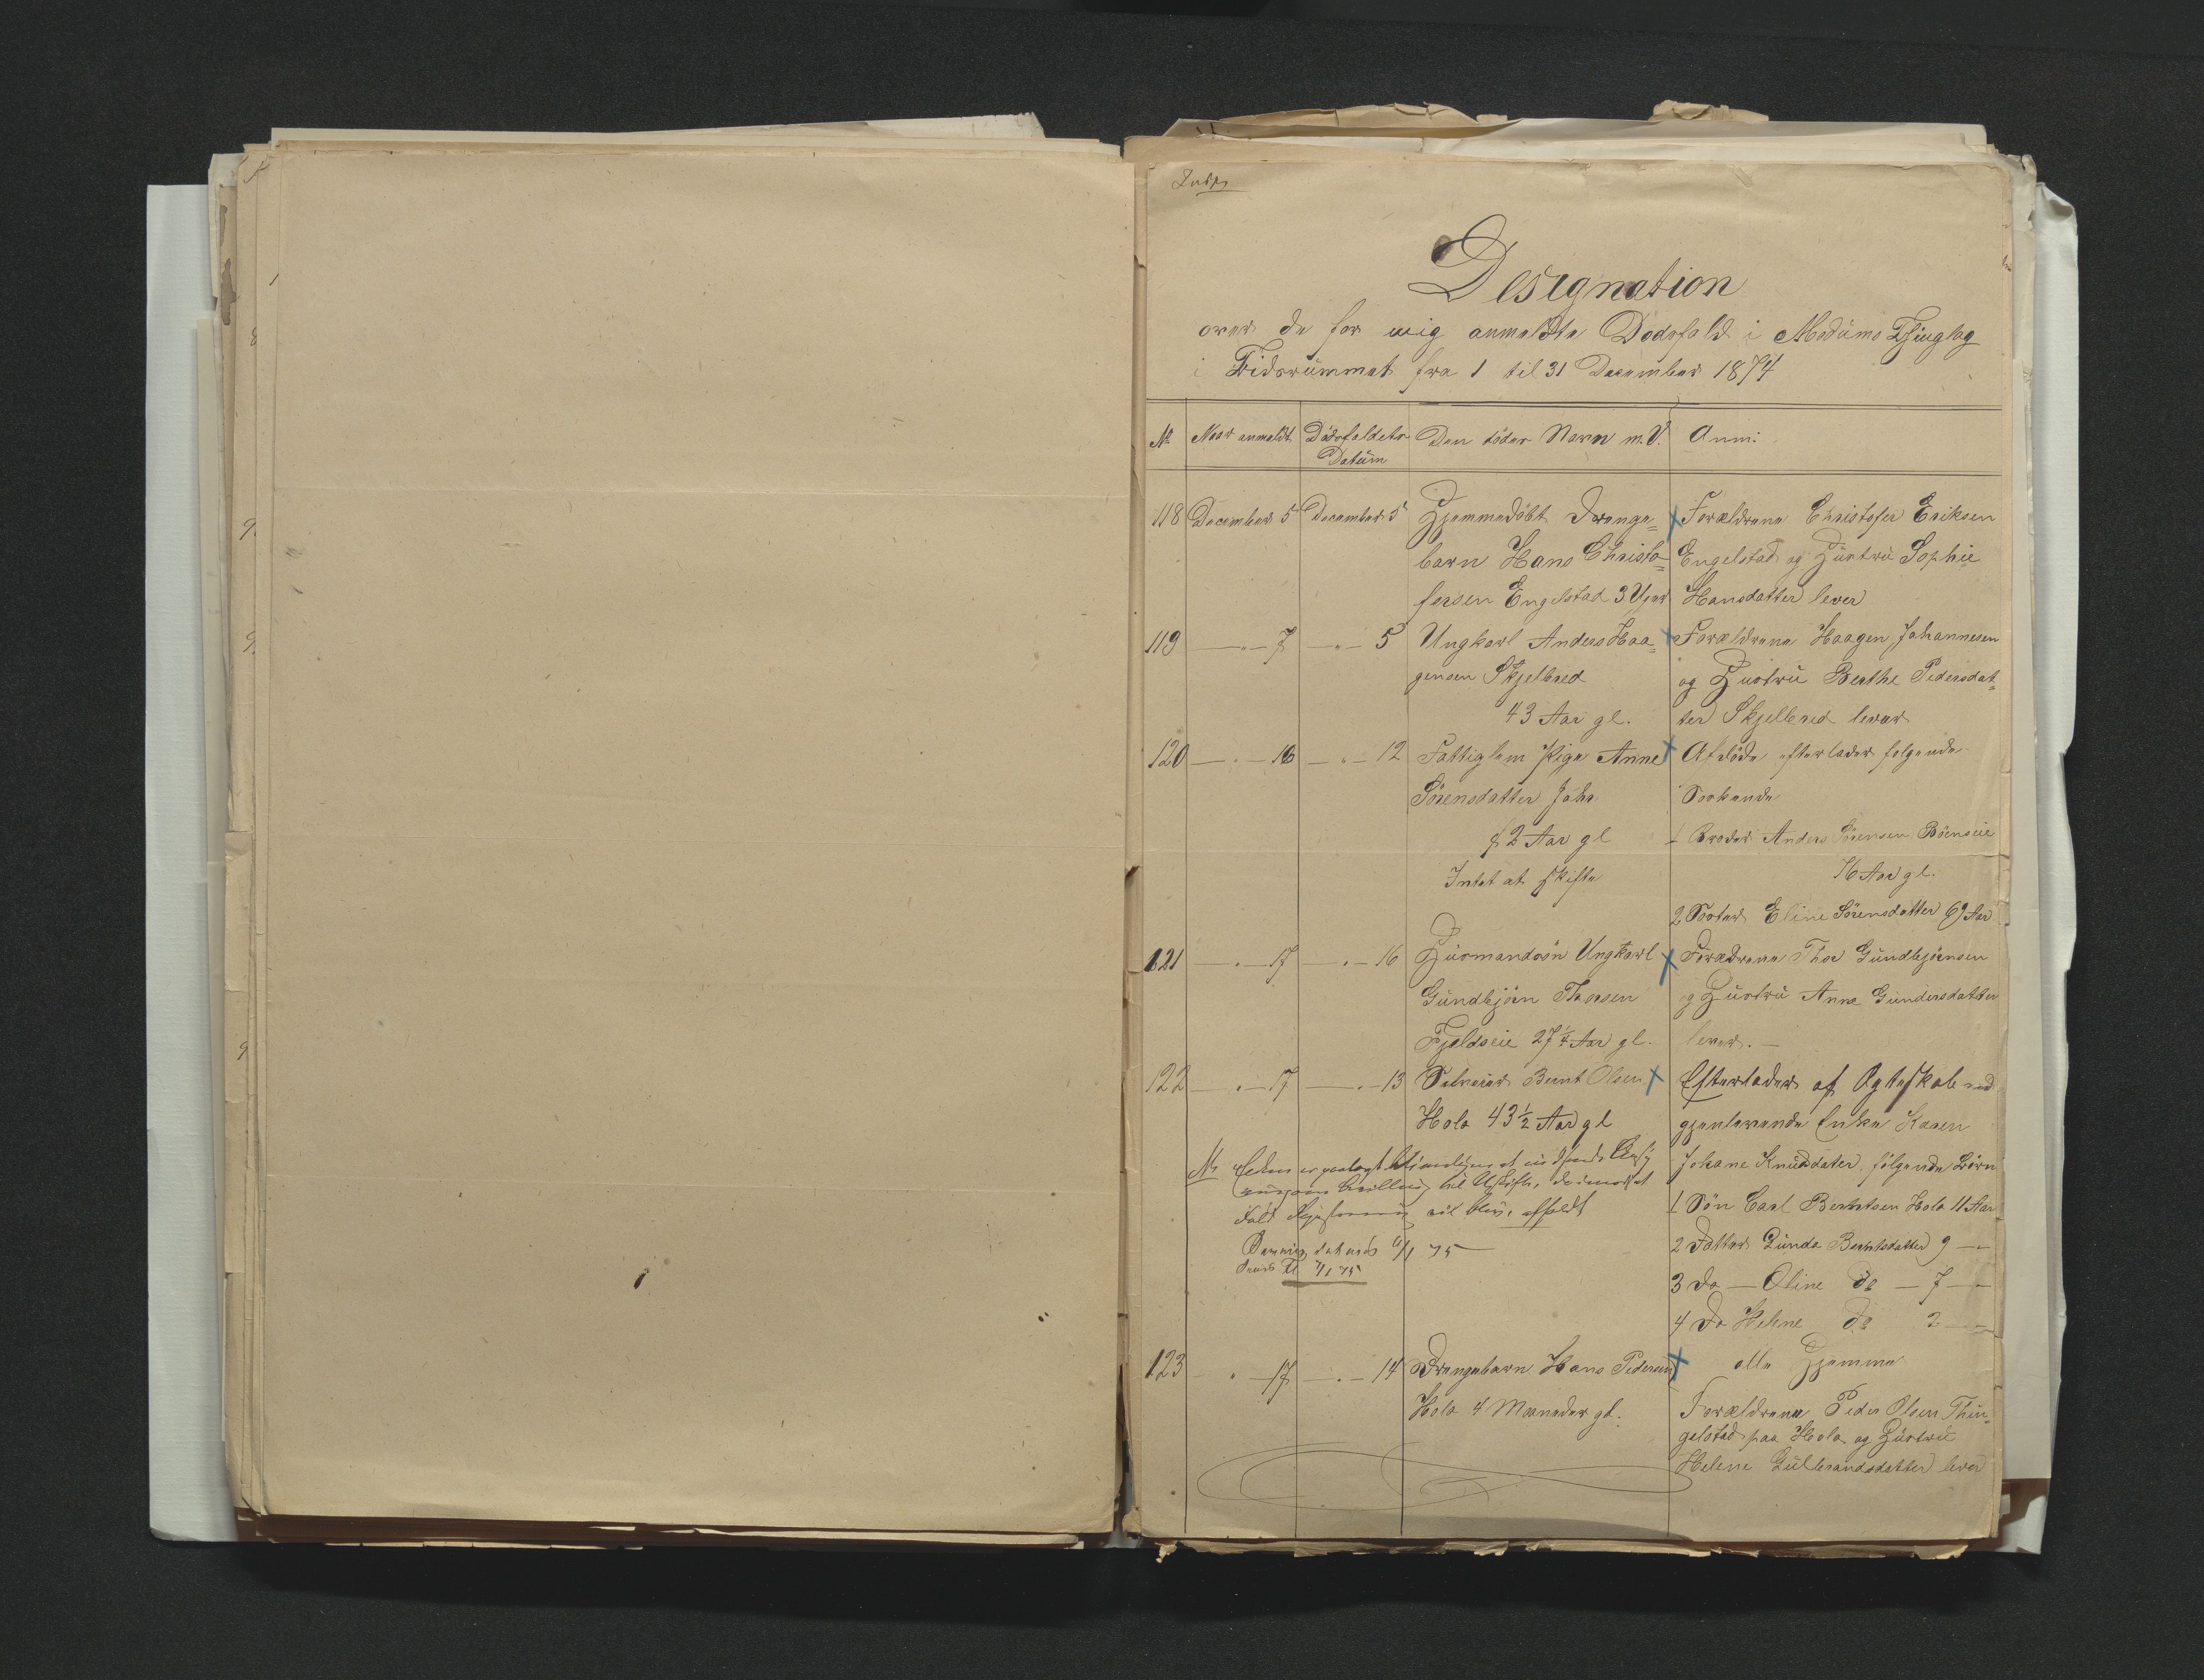 Designation
over de for mig anmeldte Dødsfald i Modums Thinglag
i Tidsrummet fra 1 til 31 December 1874
No Naar anmeldt Dødsfaldets Datum Den dødes Navn m.V. Anm:
118 December 5 December 5 Hjemmedøbt Drenge=
barn Hans Christo=
fersen Engelstad 3 Uger
Forældrene Christofer Eriksen
Engelstad og Hustru Sophie
Hansdatter lever
119 — " — 7 — " — 5 Ungkarl Anders Haa=
gensen Skjelbred
43 Aar gl.
Forældrene Haagen Johannesen
og Hustru Berthe Pedersdat=
ter Skjelbred lever
120 — " — 16 — " — 12 Fattiglem Pige Anne
Sörensdatter
72 Aar gl
Intet at skifte
Afdøde efterlader følgende
Søskende
1 Broder Anders Sörensen
76 Aar gl.
2 Søster Eline Sörensdatter 69 Aar
121 — " — 17 — " — 16 Husmandssøn Ungkarl
Gundbjörn Thorsen
Fjeldseie 27 1/4 Aar gl.
Forældrene Thor Gundbjörnsen
og Hustru Anne Gundersdatter
lever. —
122 — " — 17 — " — 13 Selveier Bernt Olsen
Hole 43 1/2 Aar gl
Efterlader af Ægteskab med
gjenlevende Enke Karen
Johane Knudsdater, følgende Børn
1 Søn Carl Berntsen Hole 11 Aar
2 Datter Gunda Berntsdatter 9 — "
3 Do — Oline Do — 7 — "
4 Do Helene Do 2 — "
alle Hjemme
Enken er paalagt
til Uskifte,
75
123 — " — 17 — " — 14 Drengebarn Hans Pedersen
Hole 4 Maaneder gl.
Forældrene Peder Olsen Thin=
gelstad paa Hole og Hustru
Helene Gulbrandsdatter lever